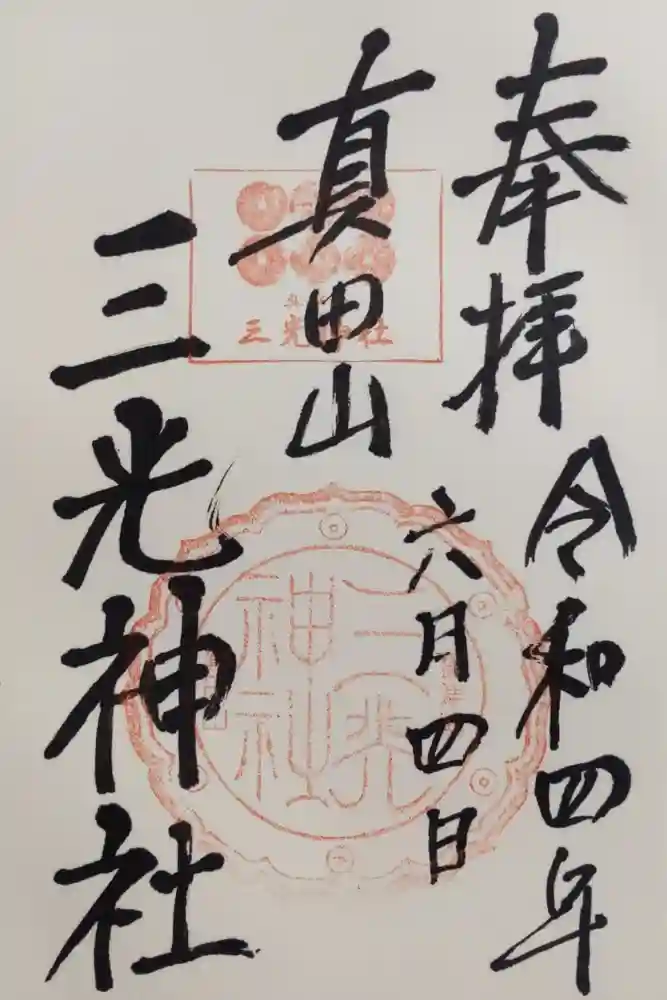 奉拝
令和四年
六月四日
真田山
三光神社
三光神社
三光神社